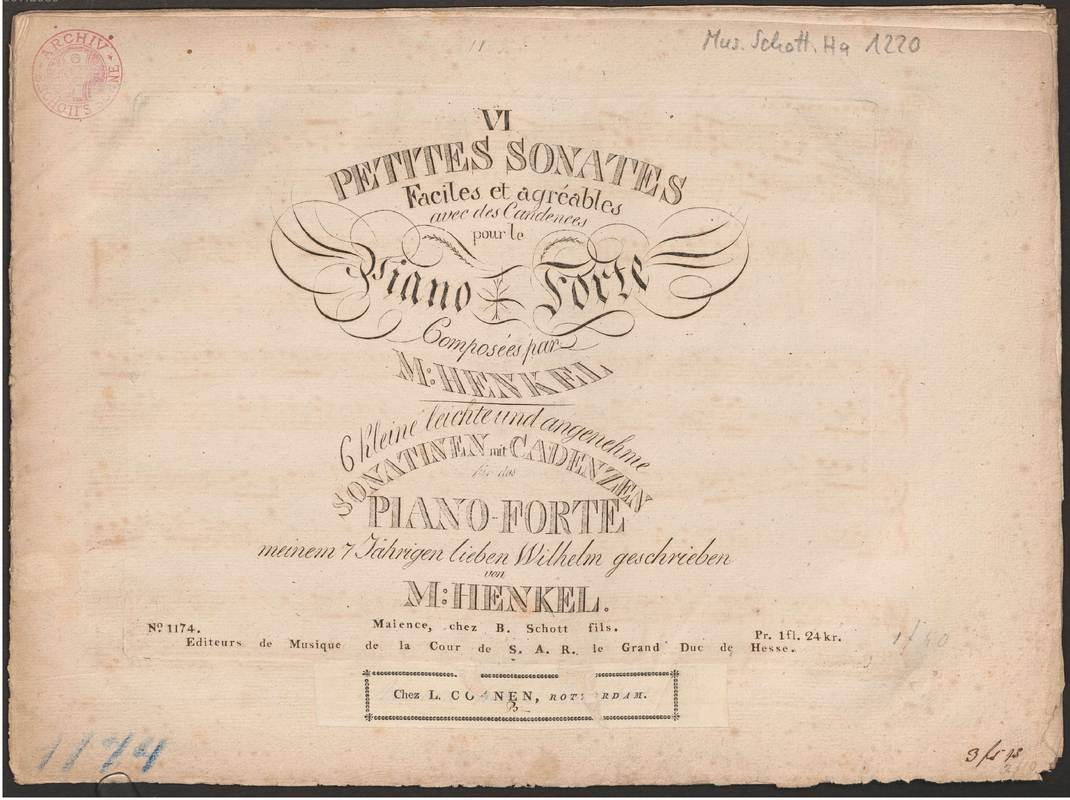 Mus. Schott. Ha 1220
ARCHIV
VI
PETITES SONATES
Faciles et agréables
avec des Candences
pour le
Piano Forte
Composées par
M: HENKEL
6 kleine leichte und angenehme
SONATINEN mit CADENZEN
für das
PIANO-FORTE
meinem 7 Jährigen lieben Wilhelm geschrieben
von
M: HENKEL.
Maience, chez B. Schott fils.
No. 1174.
Pr. 1fl. 24kr.
Editeurs de Musique de la Cour de S. A. R. le Grand Duc de Hesse.
Chez L. CO NEN, ROT RDAM.
1174